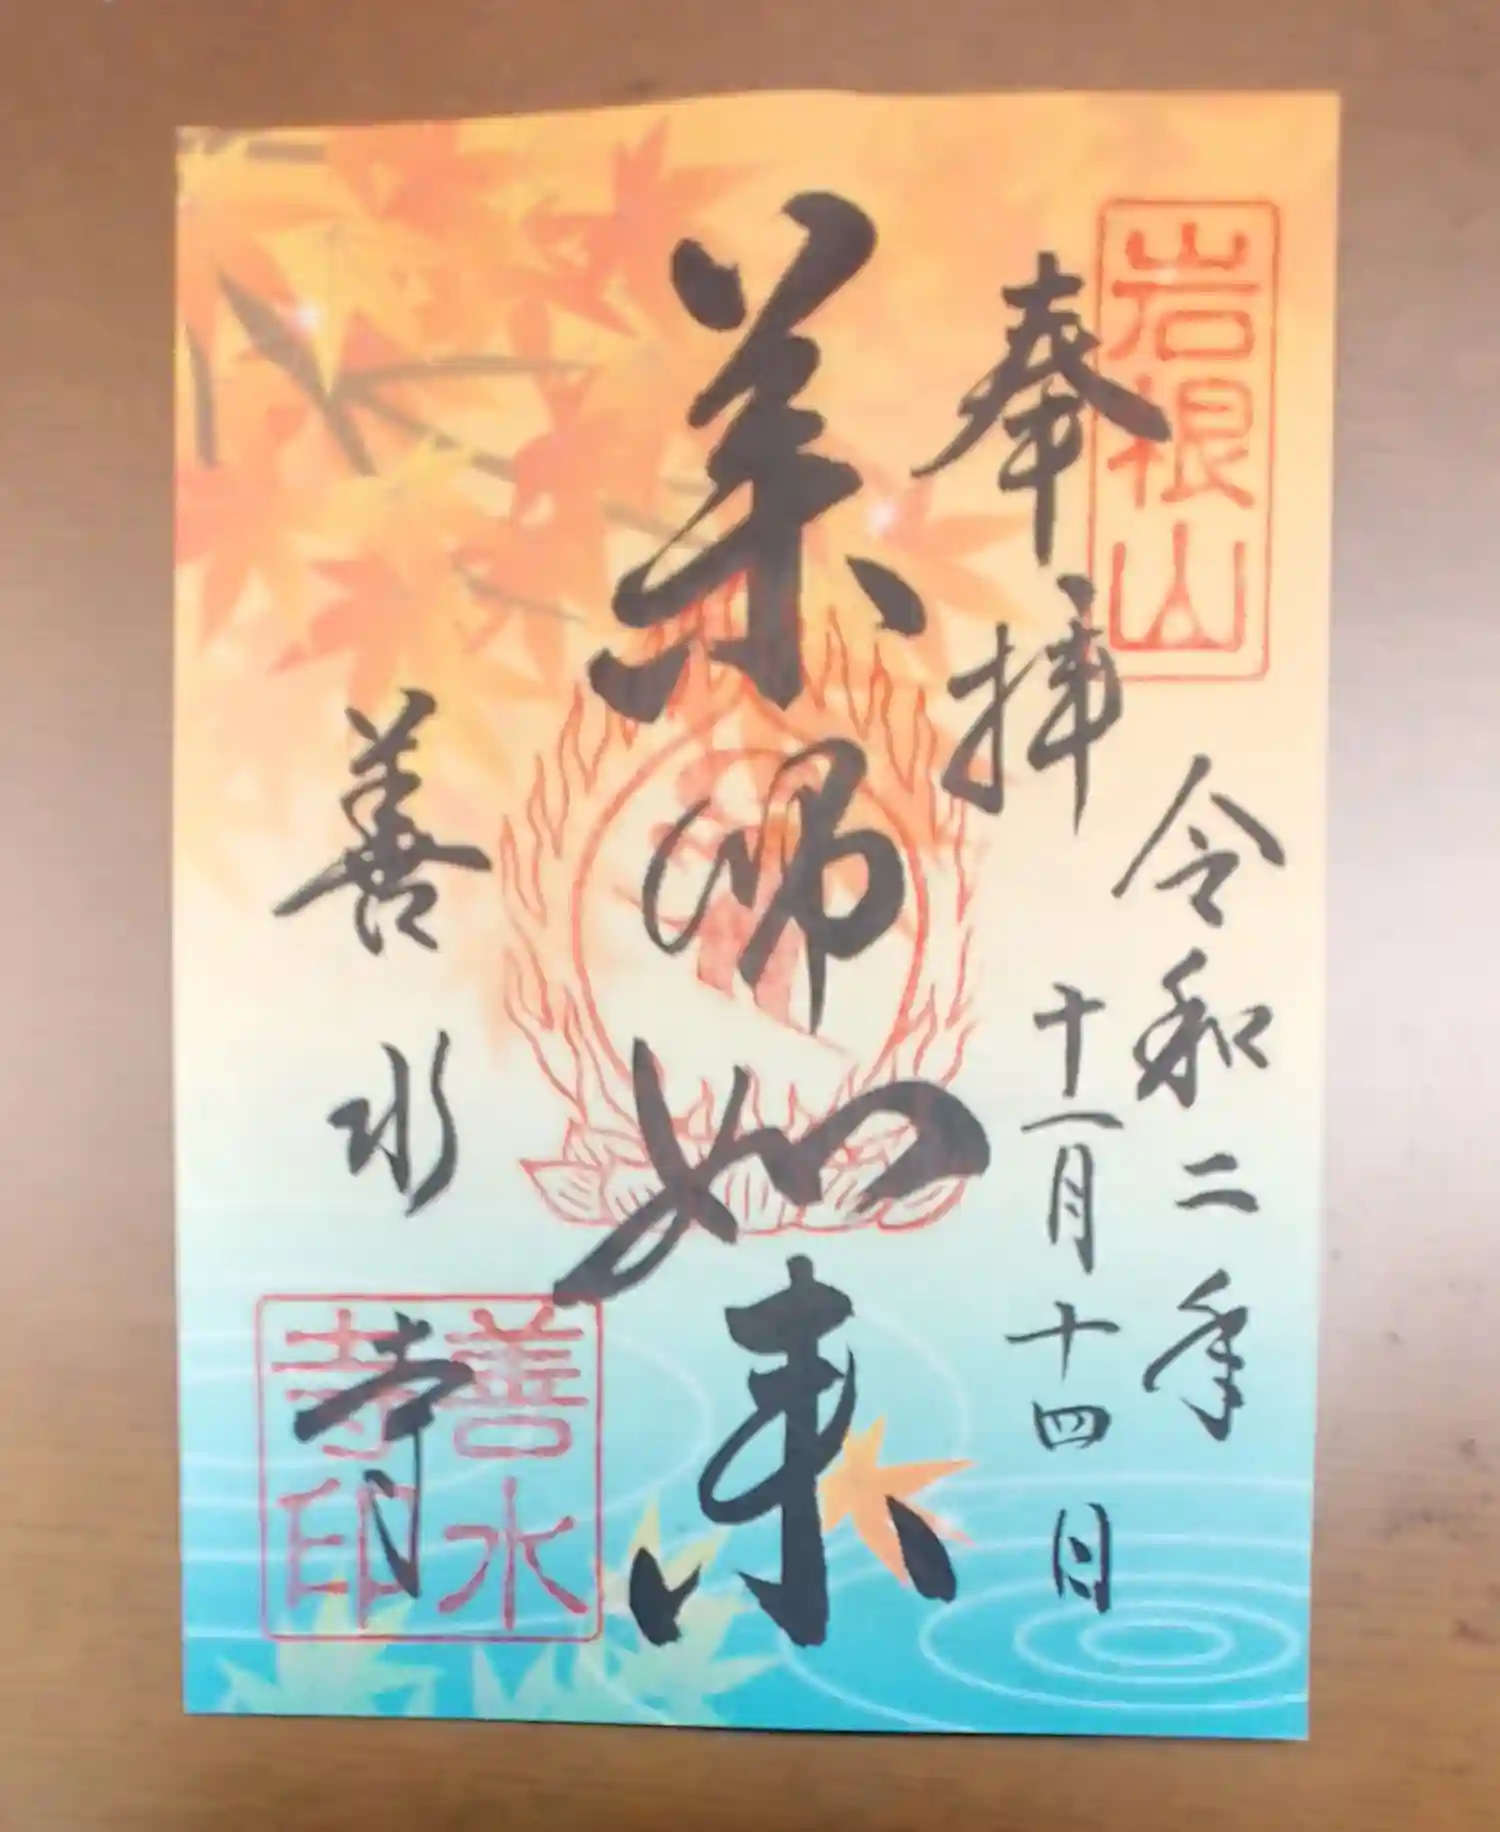 岩根山
奉拝
令和二年
十一月十四日
薬師如来
善水寺
善水
寺印